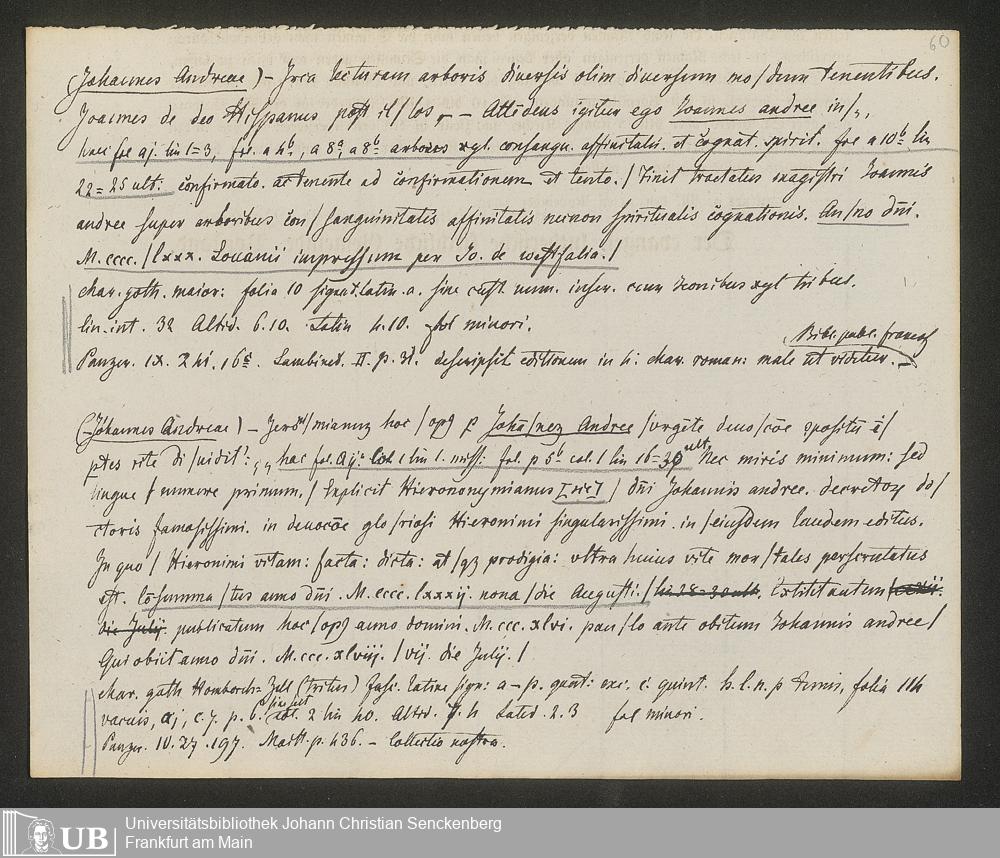 60
(Johannes Andreae) – Irca lecturam arboris diuersis olim diuersum mo/dum tenentibus.
Joannes de deo Hispanus post il/los – Attēdens igitur ego Joannes andree in/
fol. a 4b, a 8a, a 8b arbores xyl. consangu. affinitatis. et cognat. spirit. fol. a 10b lin
22 = 25 ult: cōfirmato. ac tenente ad cōfirmationem et tento. / Finit tractatus magistri Joannis
andree super arboribus cōn/sanguinitatis affinitatis necnon spiritualis cōgnationis. An/no dn̄i.
M. cccc. / lxxx. Louanii impressum per Jo. de westfalia. /
char. goth. maior: folia 10 signat. latin. a. sine cust. num. inser. cum iconibus xyl tribus.
lin. int. 32 Altid. 6.10. Latin 4.10. fol minori.
Bibl. publ. francof
Panzer. IX. 241, 16c. Lambinet. II. p. 31. descripsit editionem in 4: char. roman: male ut videtur.
(Johannes Andreae) – Jero/mianuz hoc / op9 Johā/nez Andree / vrgēte deuo/cōe
ptes rite di/uidit: hac fol. a ij. col. 1 lin 1. fol. p 5b col. 1 lin 16 = 30 ult. Nec miris minimum: sed
lingue / munere primum. / Explicit Hierononymianus [sic] / dn̄i Johannis andree. decretoȝ do/
ctoris famosissimi. in deuocōe glo/riosi Hieronimi singularissimi. in / eiusdem laudem editus.
In quo / Hieronimi vitam: facta: dicta: at/qȝ prodigia: vltra huius vite mor/tales perscrutatus
est. cōsumma/tus anno dn̄i. M. cccc. lxxxij. nona / die Augusti: / lin 28 = 30 ult. Extitit autem /
die Julij publicatum hoc /op9 anno domini. M. ccc. xlvi. pau/lo ante obitum Johannis andree /
Qui obiit anno dn̄i. M. ccc. xlviij. / vij. die Julij. /
char. goth Homborch = Zell (tritus) fasc. latine sign: a – p. quat: exc. c. quint. h. l. n. p ternis, folia 114
vacuis, a j, c. 7. p. 6. sine cust col. 2 lin 40. Altid. 7. 4 Latid. 2. 3 fol minori.
Panzer. IV. 27. 197. Maitt. p. 436. – Collectio nostra.
UB
Universitätsbibliothek Johann Christian Senckenberg
Frankfurt am Main